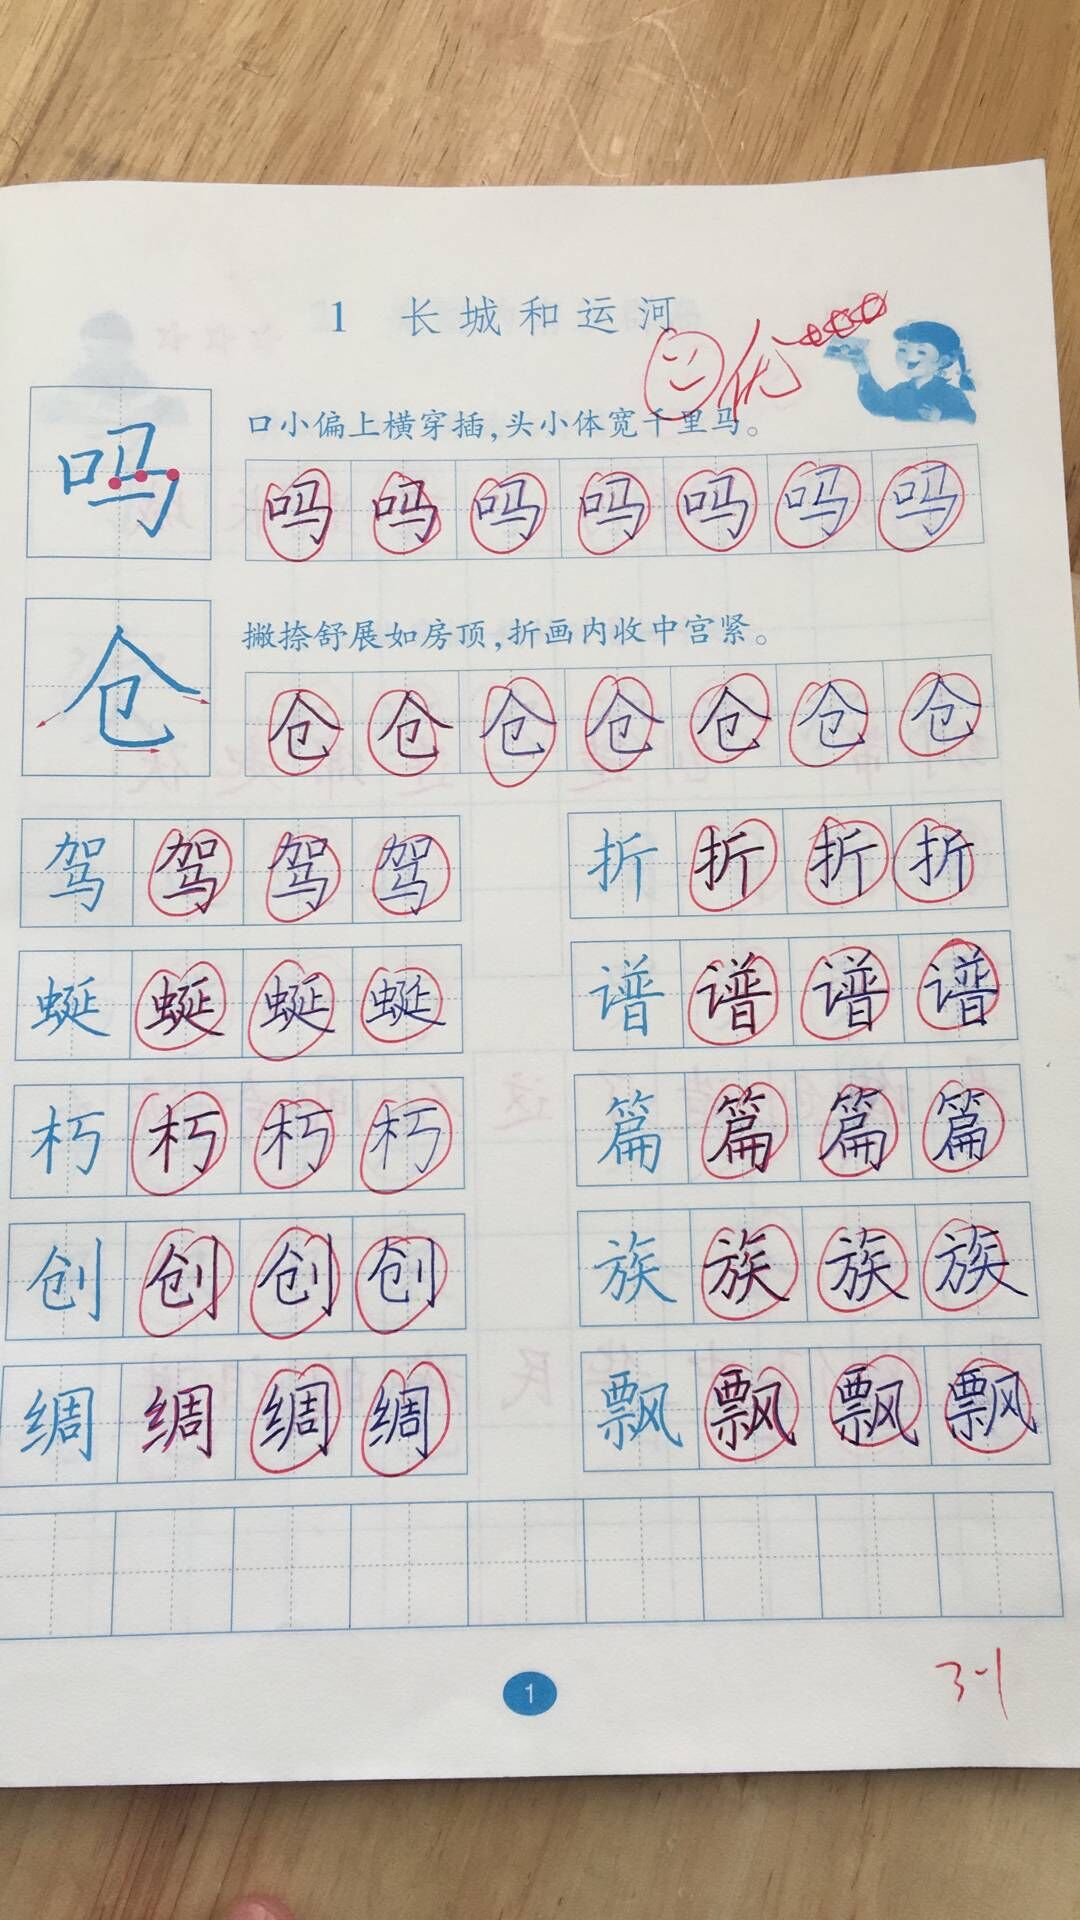 1 长城和运河
优
吗 口小偏上横穿插，头小体宽千里马。
吗 吗 吗 吗 吗 吗 吗
仓 撇捺舒展如房顶，折画内收中宫紧。
仓 仓 仓 仓 仓 仓 仓
驾 驾 驾 驾 折 折 折 折
蜒 蜒 蜒 蜒 谱 谱 谱 谱
朽 朽 朽 朽 篇 篇 篇 篇
创 创 创 创 族 族 族 族
绸 绸 绸 绸 飘 飘 飘 飘
3-1
1